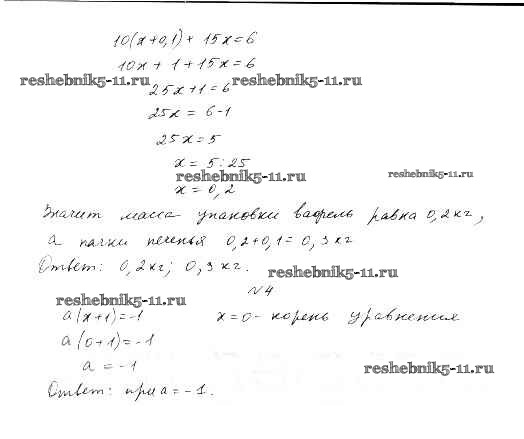 10(x+0,1) + 15x = 6
10x + 1 + 15x = 6
reshebnik5-11.ru reshebnik5-11.ru
25x+1 = 6
25x = 6-1
25x = 5
x = 5:25
reshebnik5-11.ru reshebnik5-11.ru
x = 0,2
Значит масса упаковки вафель равна 0,2 кг,
а пачки печенья 0,2+0,1 = 0,3 кг
Ответ: 0,2 кг; 0,3 кг.
reshebnik5-11.ru
№4
reshebnik5-11.ru
a(x+1) = -1 x=0 - корень уравнения
a(0+1) = -1
a = -1
reshebnik5-11.ru
Ответ: при a = -1.